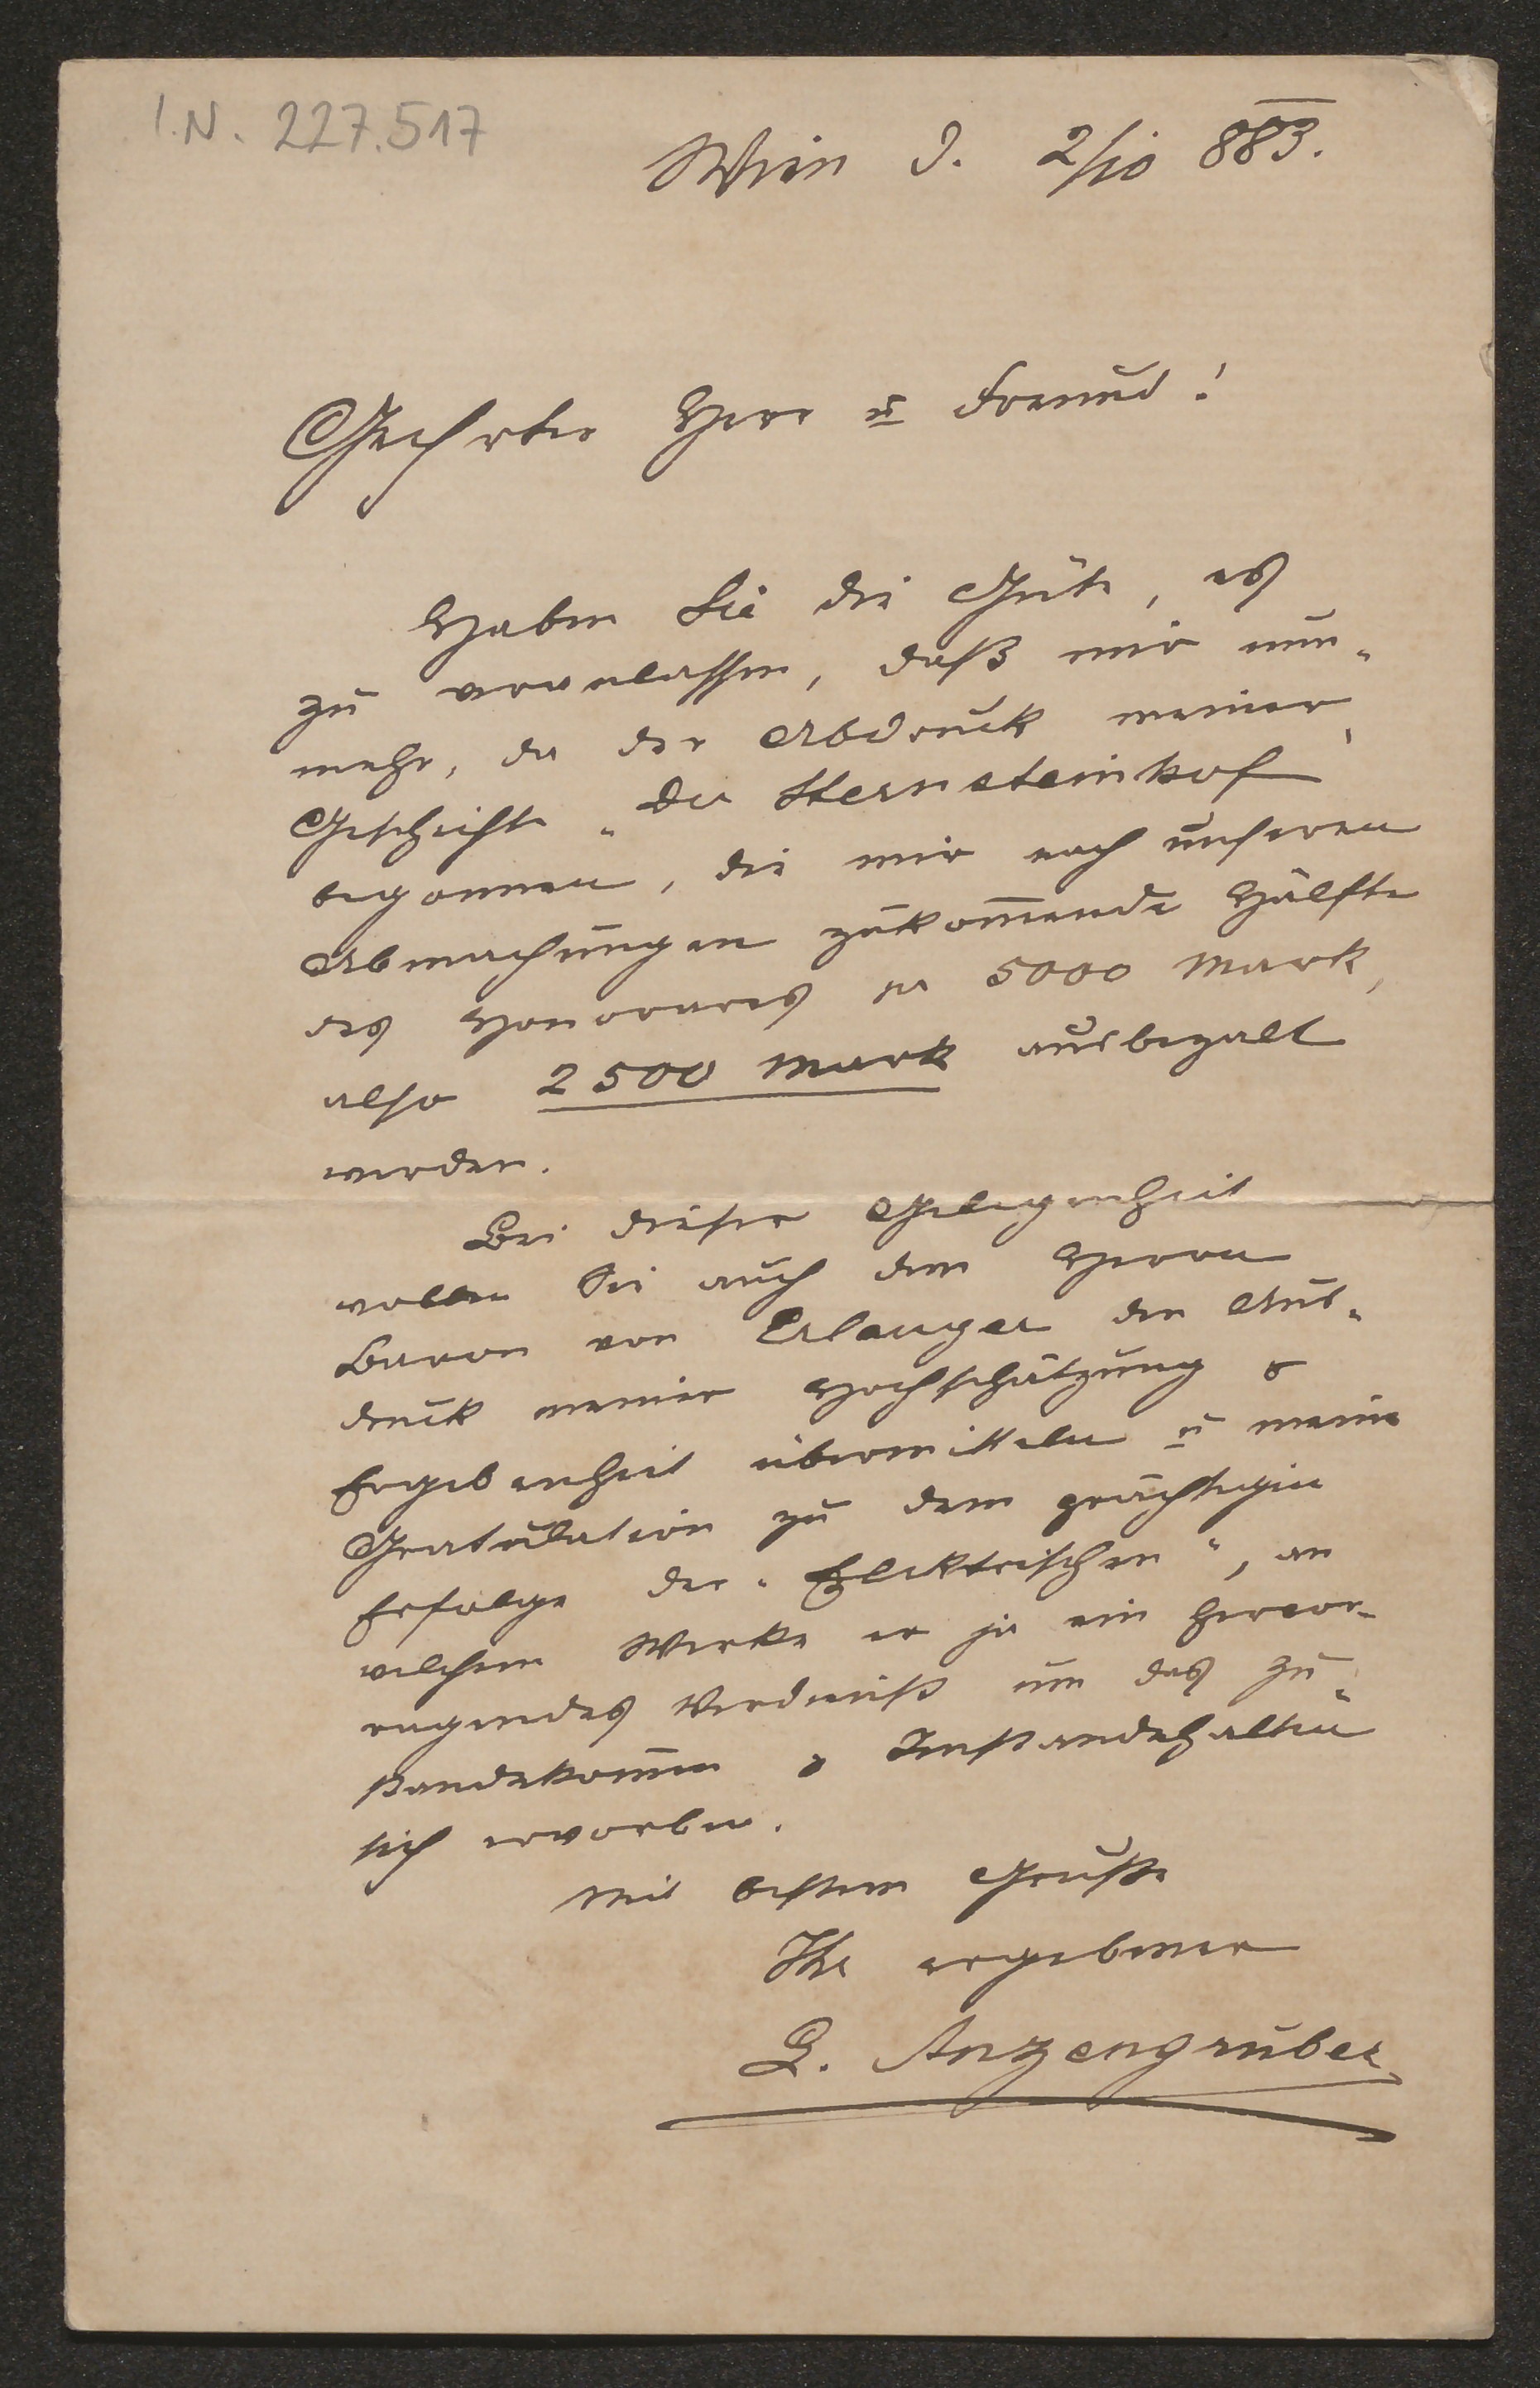 I.N. 227.517
Wien d. 2/10 883.
Geehrter Herr u Freund!
Haben Sie die Güte, es
zu veranlassen, daß mir nun-
mehr, da der Abdruck meiner
Geschichte „Der Sternsteinhof"
begonnen, die mir nach unseren
Abmachungen zukom̅ende Hälfte
des Honorares pr 5000 Mark,
also 2500 Mark ausbezalt
werden.
Bei dieser Gelegenheit
wollen Sie auch dem Herrn
Baron von Erlanger den Aus-
druck meiner Hochschätzung &
Ergebenheit übermitteln u meine
Gratulation zu dem prächtigen
Erfolge der „Elektrischen", an
welchem Werke er ja ein hervor-
ragendes Verdienst um das Zu-
standekom̅en & Imstandehalten
sich erworben.
Mit bestem Gruße
Ihr ergebener
L. Anzengruber